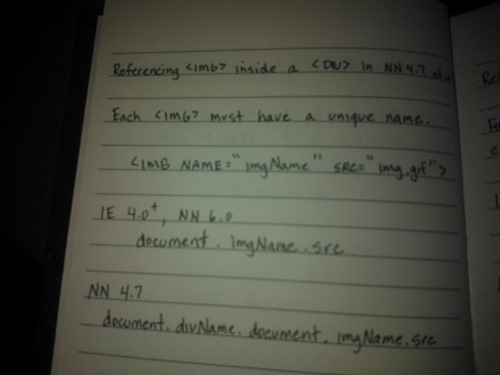 Referencing <IMG> inside a <DIV> in NN 4.7
Each <IMG> must have a unique name.
<IMG NAME="imgName" SRC="img.gif">
IE 4.0+, NN 6.0
document.imgName.src
NN 4.7
document.divName.document.imgName.src